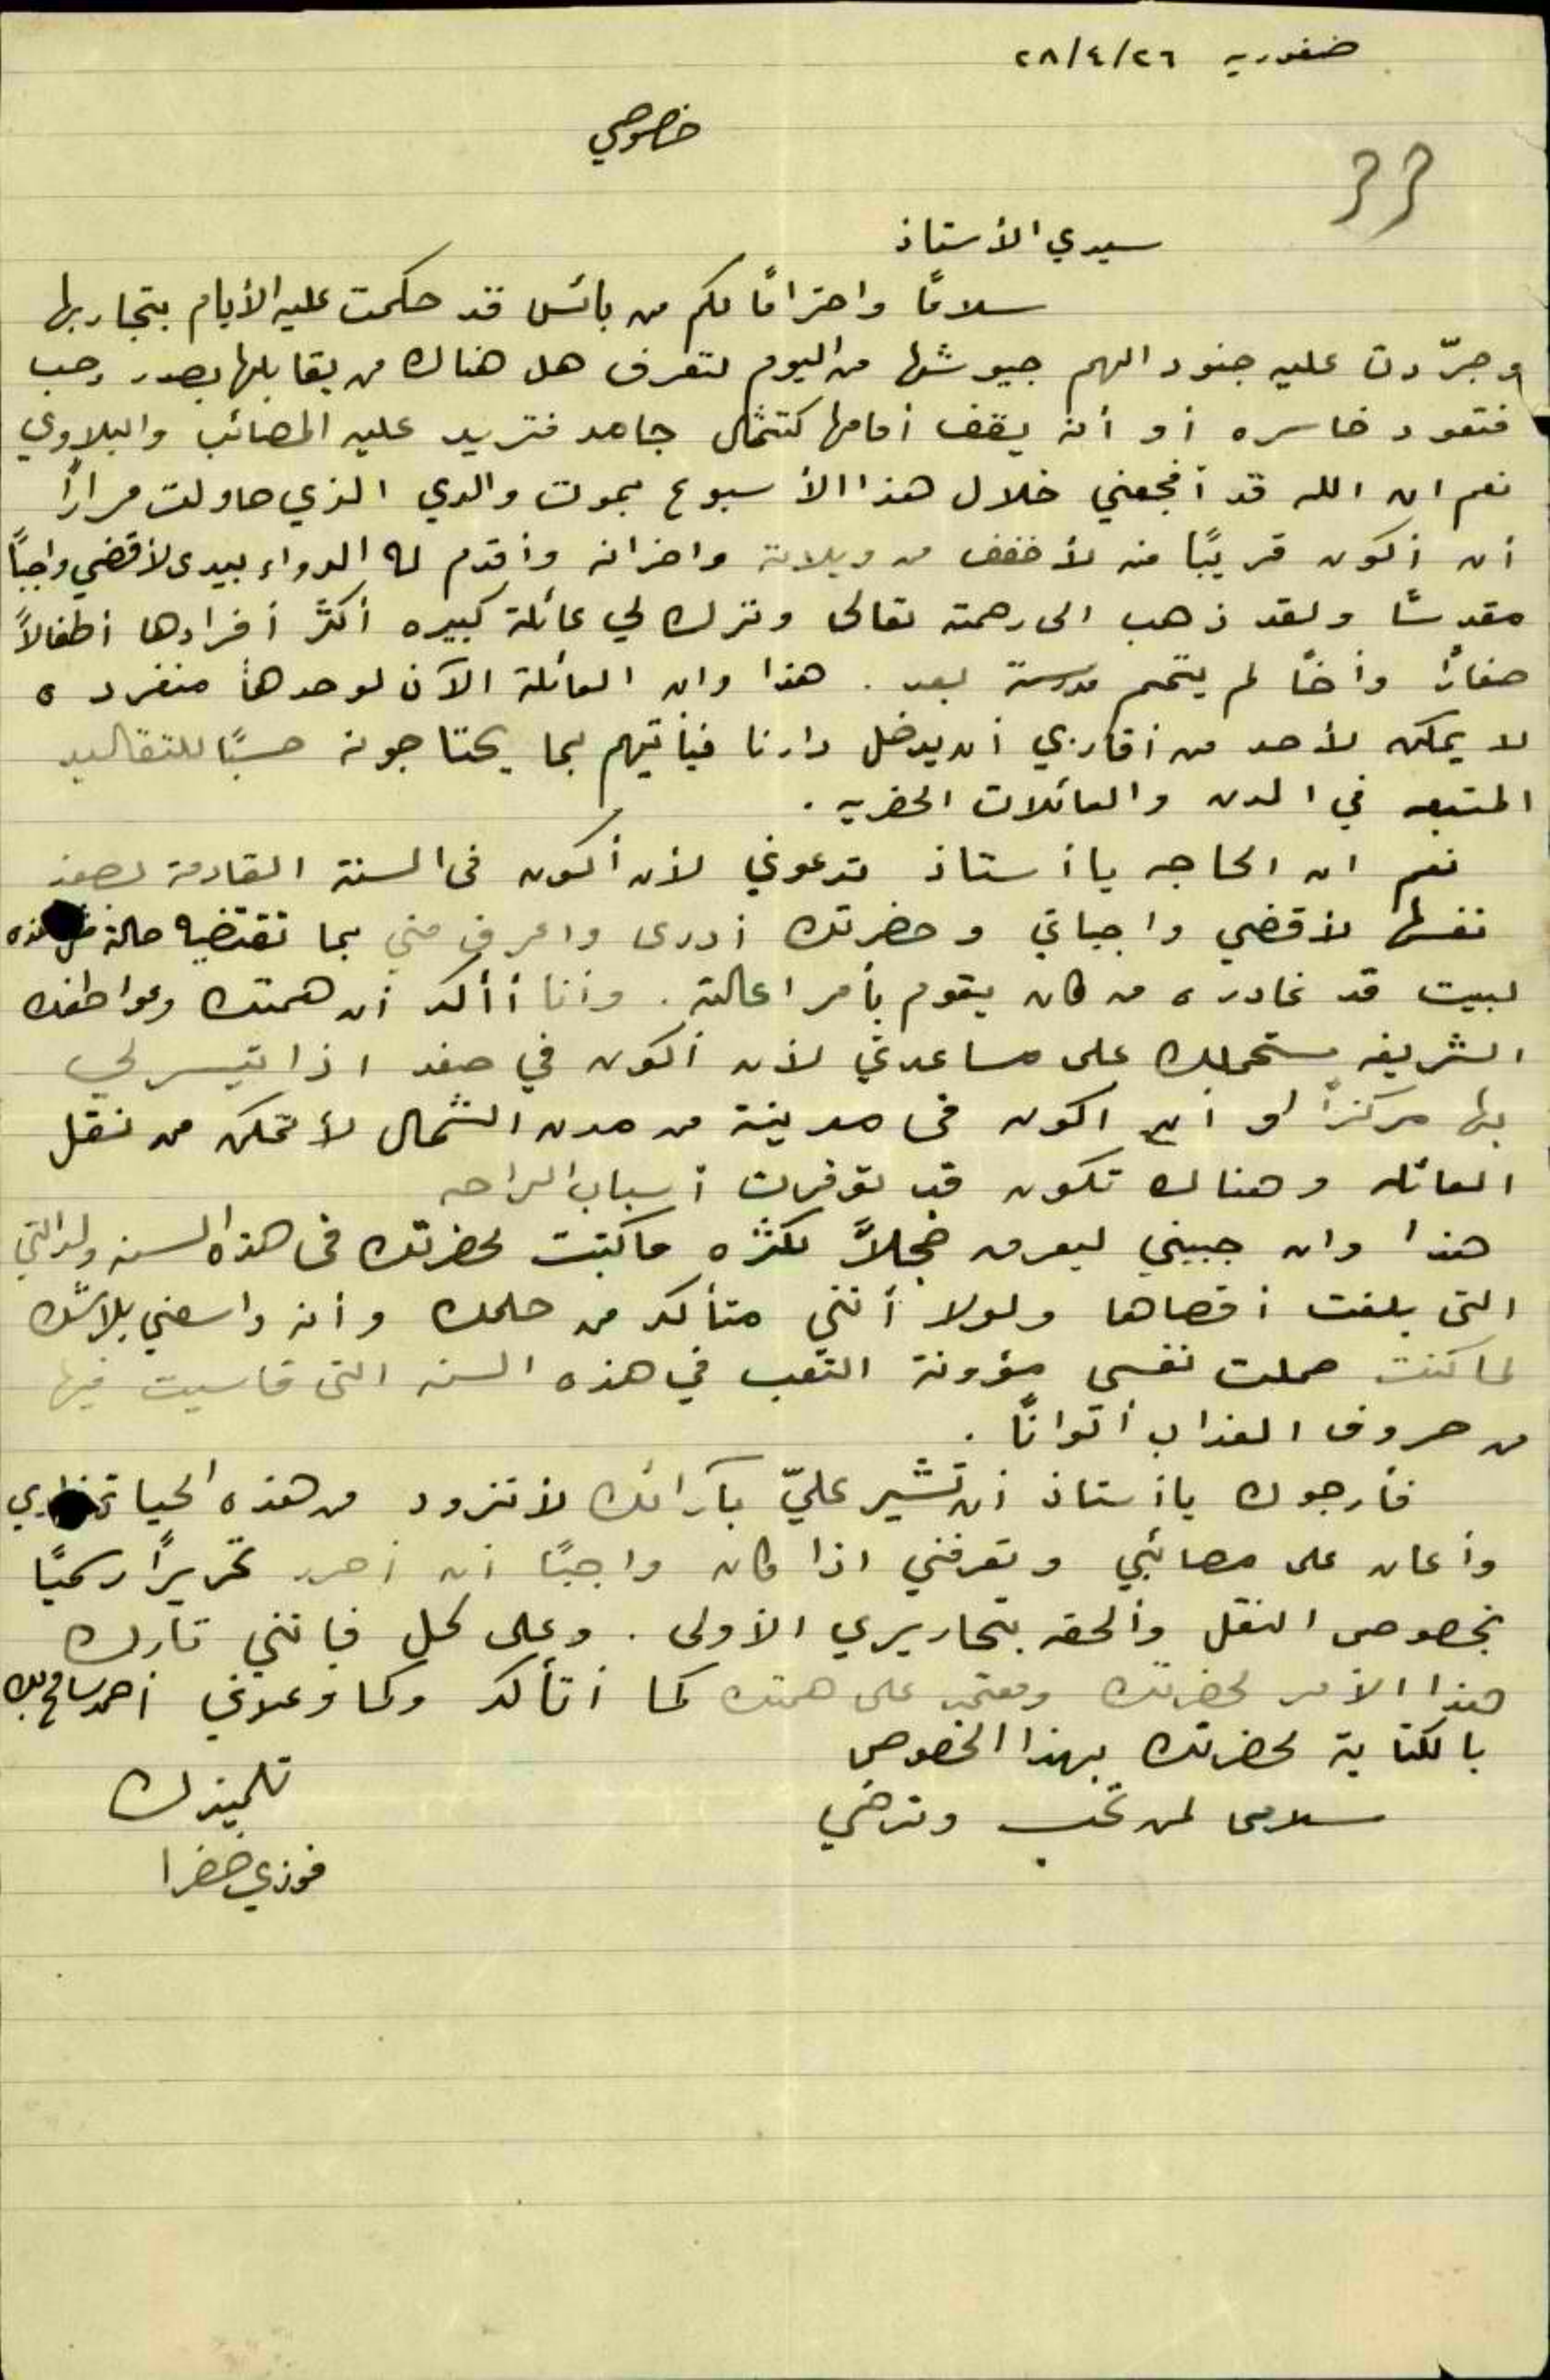 صفوريه ٢٦/٤/٢٨
خصوصي
سيدي الأستاذ
سلامًا واحترامًا لكم من بائس قد حكمت عليه الأيام بتجاربها
وجرّدت عليه جنود الهم جيوشها من اليوم لتعرف هل هناك من يقابلها بصدر رحب
فتعود خاسره أو أنه يقف أمامها كتمثال جامد فتزيد عليه المصائب والبلاوي
نعم ان الله قد أفجعني خلال هذا الأسبوع بموت والدي الذي حاولت مرارًا
أن أكون قريبًا منه لأخفف من ويلاته واحزانه وأقدم له الدواء بيدى لأقضي واجبًا
مقدسًا ولقد ذهب الى رحمته تعالى وترك لي عائلة كبيره أكثر أفرادها أطفالاً
صغارًا وأخًا لم يتمم مدرسته بعد . هذا وان العائلة الآن لوحدها منفرده
لا يمكن لأحد من أقاربي أن يدخل دارنا فيأتيهم بما يحتاجونه حسبًا للتقاليد
المتبعه في المدن والعائلات الحضريه .
نعم ان الحاجه يا أستاذ تدعوني لأن أكون فى السنة القادمة بصفد
نفسها لأقضي واجباتي وحضرتك أدرى واعرف مني بما تقتضيه حالة هذه
لبيت قد غادره من كان يقوم بأمر اعالته . وأنا أأكد أن همتك وعواطفك
الشريفه ستحملك على مساعدتي لأن أكون في صفد اذا تيسر لي
بها مركزًا او أن اكون فى مدينة من مدن الشمال لأتمكن من نقل
العائله وهناك تكون قد توفرت أسباب الراحه
هذا وان جبيني ليعرق خجلاً لكثره ما كتبت لحضرتك فى هذه السنه
التى بلغت أقصاها ولولا أنني متأكد من حلمك وأنه واسعني بلا شك
لما كنت حملت نفسى مؤونة التعب في هذه السنه التى قاسيت فيها
من صروف العذاب ألوانًا .
فأرجوك يا أستاذ أن تشير عليّ بآرائك لأتزود من هذه الحياة
وأعان على مصائبي وتعرفني اذا كان واجبًا أن أحرر تحريرًا رسميًا
بخصوص النقل وألحقه بتحاريري الأولى . وعلى كل فإنني تارك
هذا الأمر لحضرتك ومعتمد على همتك كما أتأكد وكما وعدني أحمد سامح بك
بالكتابة لحضرتك بهذا الخصوص
سلامى لمن تحب وترضي
تلميذك
فوزي خضرا